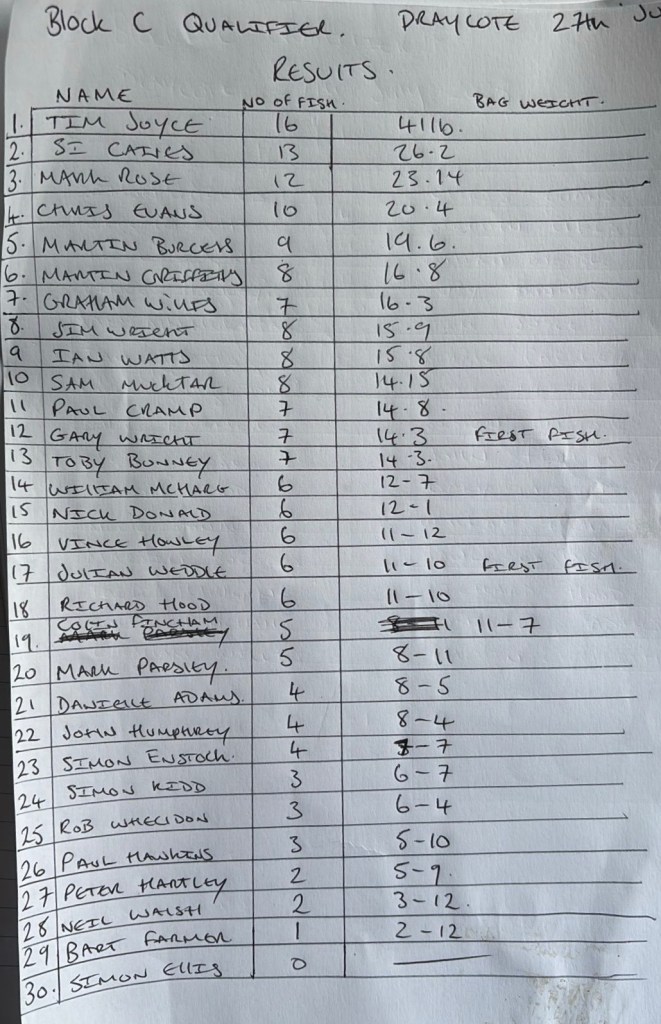 BLOCK C QUALIFIER. DRAYCOTE 27TH JU
RESULTS.
NAME NO OF FISH. BAG WEIGHT.
1. TIM JOYCE 16 41lb.
2. SI CAINES 13 26.2
3. MARK ROSE 12 23.14
4. CHRIS EVANS 10 20.4
5. MARTIN BURGESS 9 19.6.
6. MARTIN GRIFFITHS 8 16.8
7. GRAHAM 7 16.3
8. JIM WRIGHT 8 15.9
9 IAN WATTS 8 15.8
10 SAM MUCKTAR 8 14.15
11 PAUL CRAMP 7 14.8.
12 GARY WRIGHT 7 14.3 FIRST FISH.
13 TOBY BUNNEY 7 14.3.
14 WILLIAM MCHARG 6 12-7
15 NICK DONALD 6 12-1
16 VINCE HOWLEY 6 11-12
17 JULIAN WEDDLE 6 11-10 FIRST FISH.
18 RICHARD HOOD 6 11-10
19. COLIN FINCHAM 5 11-7
20 MARK PARSLEY. 5 8-11
21 DANIELLE ADAMS. 4 8-5
22 JOHN HUMPHREY 4 8-4
23 SIMON ENSTOCK. 4 -7
24 SIMON KIDD 3 6-7
25 ROB WHELDON 3 6-4
26 PAUL HAWKINS 3 5-10
27 PETER HARTLEY 2 5-9.
28 NEIL WALSH 2 3-12.
29 BART FARMER 1 2-12
30. SIMON ELLIS 0 —